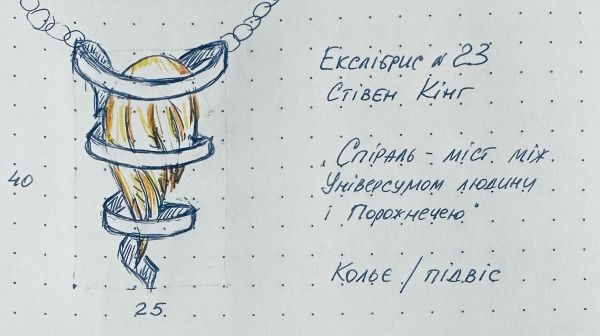 Екслібрис N 23
Стівен Кінг
„Спіраль - міст між
Універсумом людини
і Порожнечею"
40
Кольє / підвіс
25.